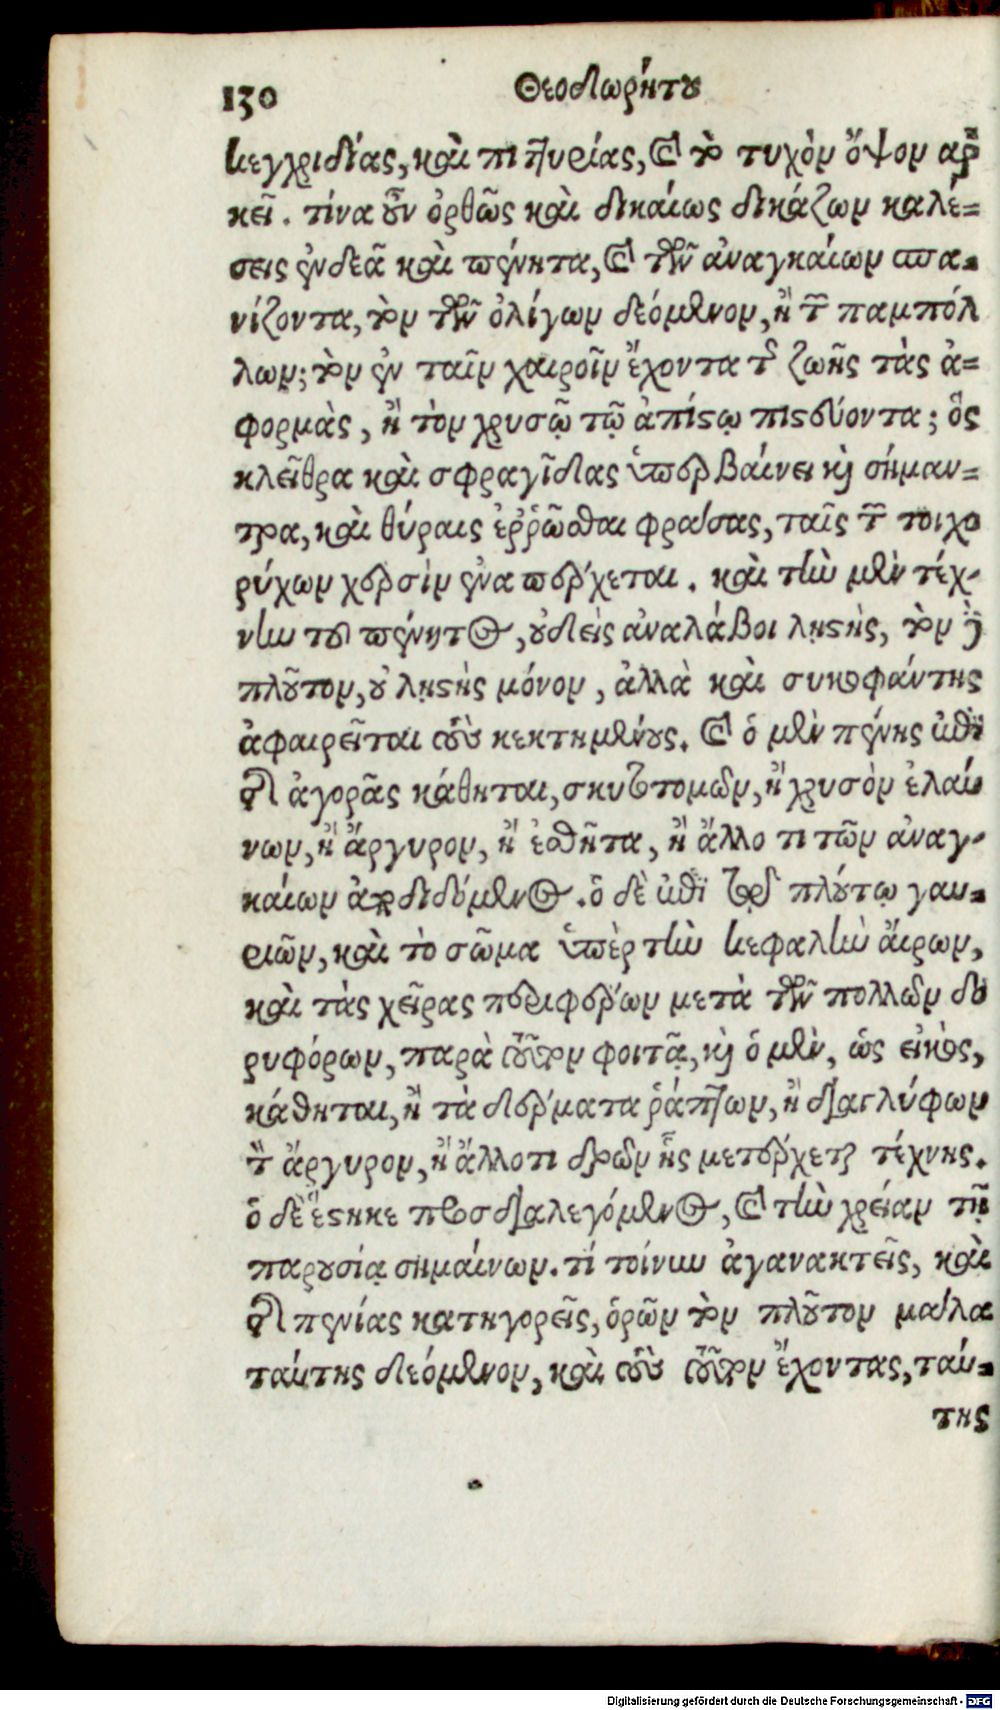 130 Θεοδωρήτου
κεγχριδίας, καὶ πιτυρίας, καὶ τὸ τυχὸν ὄψον ἀρ
κεῖ. τίνα οὖν ὀρθῶς καὶ δικαίως δικάζων καλέ=
σεις ἐνδεᾶ καὶ πένητα, καὶ τῶν ἀναγκαίων σπα=
νίζοντα, τὸν τῶν ὀλίγων δεόμενον, ἢ τῶν παμπόλ
λων; τὸν ἐν ταῖν χεροῖν ἔχοντα τῆς ζωῆς τὰς ἀ=
φορμὰς, ἢ τὸν χρυσῷ τῷ ἀπίστῳ πιστεύοντα; ὃς
κλεῖθρα καὶ σφραγῖδας ὑπερβαίνει καὶ σήμαν=
τρα, καὶ θύραις ἐῤῥῶσθαι φράσας, ταῖς τῶν τοιχω
ρύχων χερσὶν ἐναπέρχεται. καὶ τὴν μὲν τέχ-
νην τοῦ πένητος, οὐδεὶς ἀναλάβοι λῃστὴς, τὸν δὲ
πλοῦτον, οὐ λῃστὴς μόνον, ἀλλὰ καὶ συκοφάντης
ἀφαιρεῖται τοὺς κεκτημένους. καὶ ὁ μὲν πένης ἐπὶ
τῆς ἀγορᾶς κάθηται, σκυτοτομῶν, ἢ χρυσὸν ἐλαύ
νων, ἢ ἄργυρον, ἢ ἐσθῆτα, ἢ ἄλλο τι τῶν ἀναγ-
καίων ἀποδιδόμενος. ὁ δὲ ἐπὶ τῷ πλούτῳ γαυ=
ριῶν, καὶ τὸ σῶμα ὑπὲρ τὴν κεφαλὴν αἴρων,
καὶ τὰς χεῖρας περιφέρων μετὰ τῶν πολλῶν δο
ρυφόρων, παρὰ τοῦτον φοιτᾷ, καὶ ὁ μὲν, ὡς εἰκὸς,
κάθηται, ἢ τὰ δέρματα ῥάπτων, ἢ διαγλύφων
τὸν ἄργυρον, ἢ ἄλλο τι δρῶν ἧς μετέρχεται τέχνης.
ὁ δὲ ἕστηκε προσδιαλεγόμενος, καὶ τὴν χρείαν τῇ
παρουσίᾳ σημαίνων. τί τοίνυν ἀγανακτεῖς, καὶ
τῆς πενίας κατηγορεῖς, ὁρῶν τὸν πλοῦτον μάλα
ταύτης δεόμενον, καὶ τοὺς τοῦτον ἔχοντας, ταύ=
της
Digitalisierung gefördert durch die Deutsche Forschungsgemeinschaft - DFG